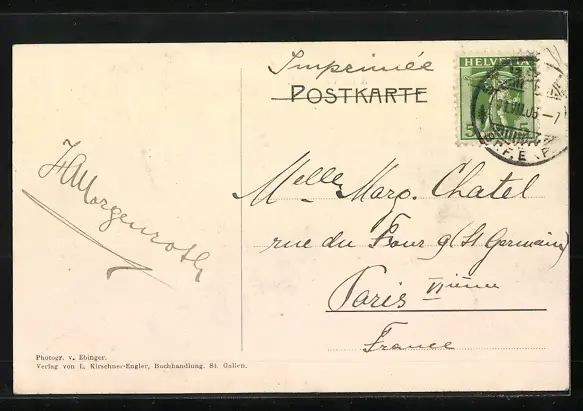 Imprimée
POSTKARTE
HELVETIA
5 5
Melle Marg. Chatel
rue du Four 9 (St Germain)
Paris VIième
France
HMorgenroth
Photogr. v. Ebinger.
Verlag von L. Kirschner-Engler, Buchhandlung. St. Gallen.